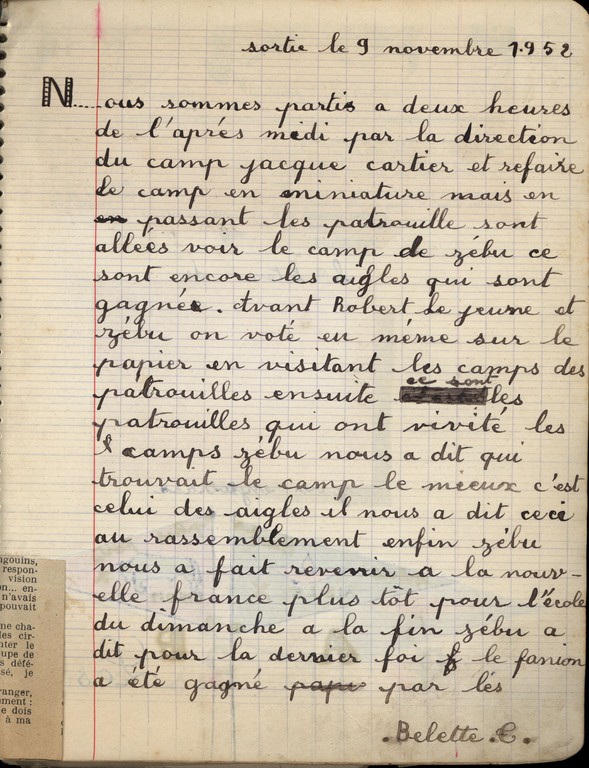 sortie le 9 novembre 1.952
N....ous sommes partis a deux heures
de l'aprés midi par la direction
du camp jacque cartier et refaire
le camp en miniature mais en
en passant les patrouille sont
alleés voir le camp de zébu ce
sont encore les aigles qui sont
gagnée. Avant Robert le jeune et
zébu on voté eu méme sur le
papier en visitant les camps des
patrouilles ensuite ce sont les
patrouilles qui ont vivité les
camps zébu nous a dit qui
trouvait le camp le mieux c'est
celui des aigles il nous a dit ceci
au rassemblement enfin zébu
nous a fait revenir a la nouv-
elle france plus tôt pour l'école
du dimanche a la fin zébu a
dit pour la dernier foi le fanion
a été gagné papi par lés
.Belette.C.
ngouins,
respon-
vision
on... en-
n'avais
pouvait
ne cha-
les cir-
nter le
upe de
s défé-
sé, je
ranger,
ement :
e dois
à ma